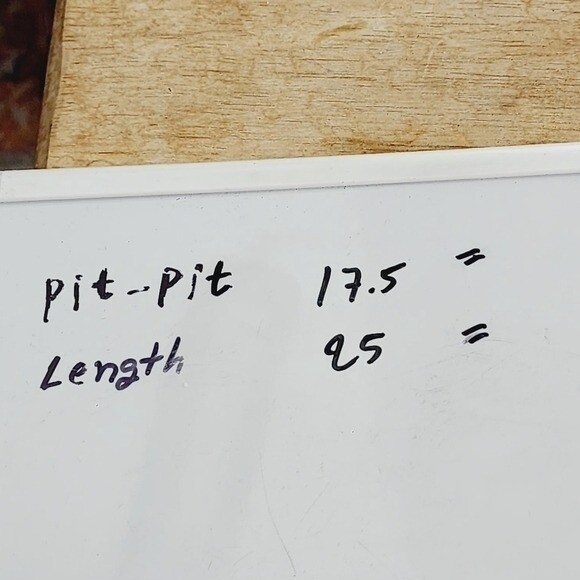 pit-pit 17.5 "
Length 25 "